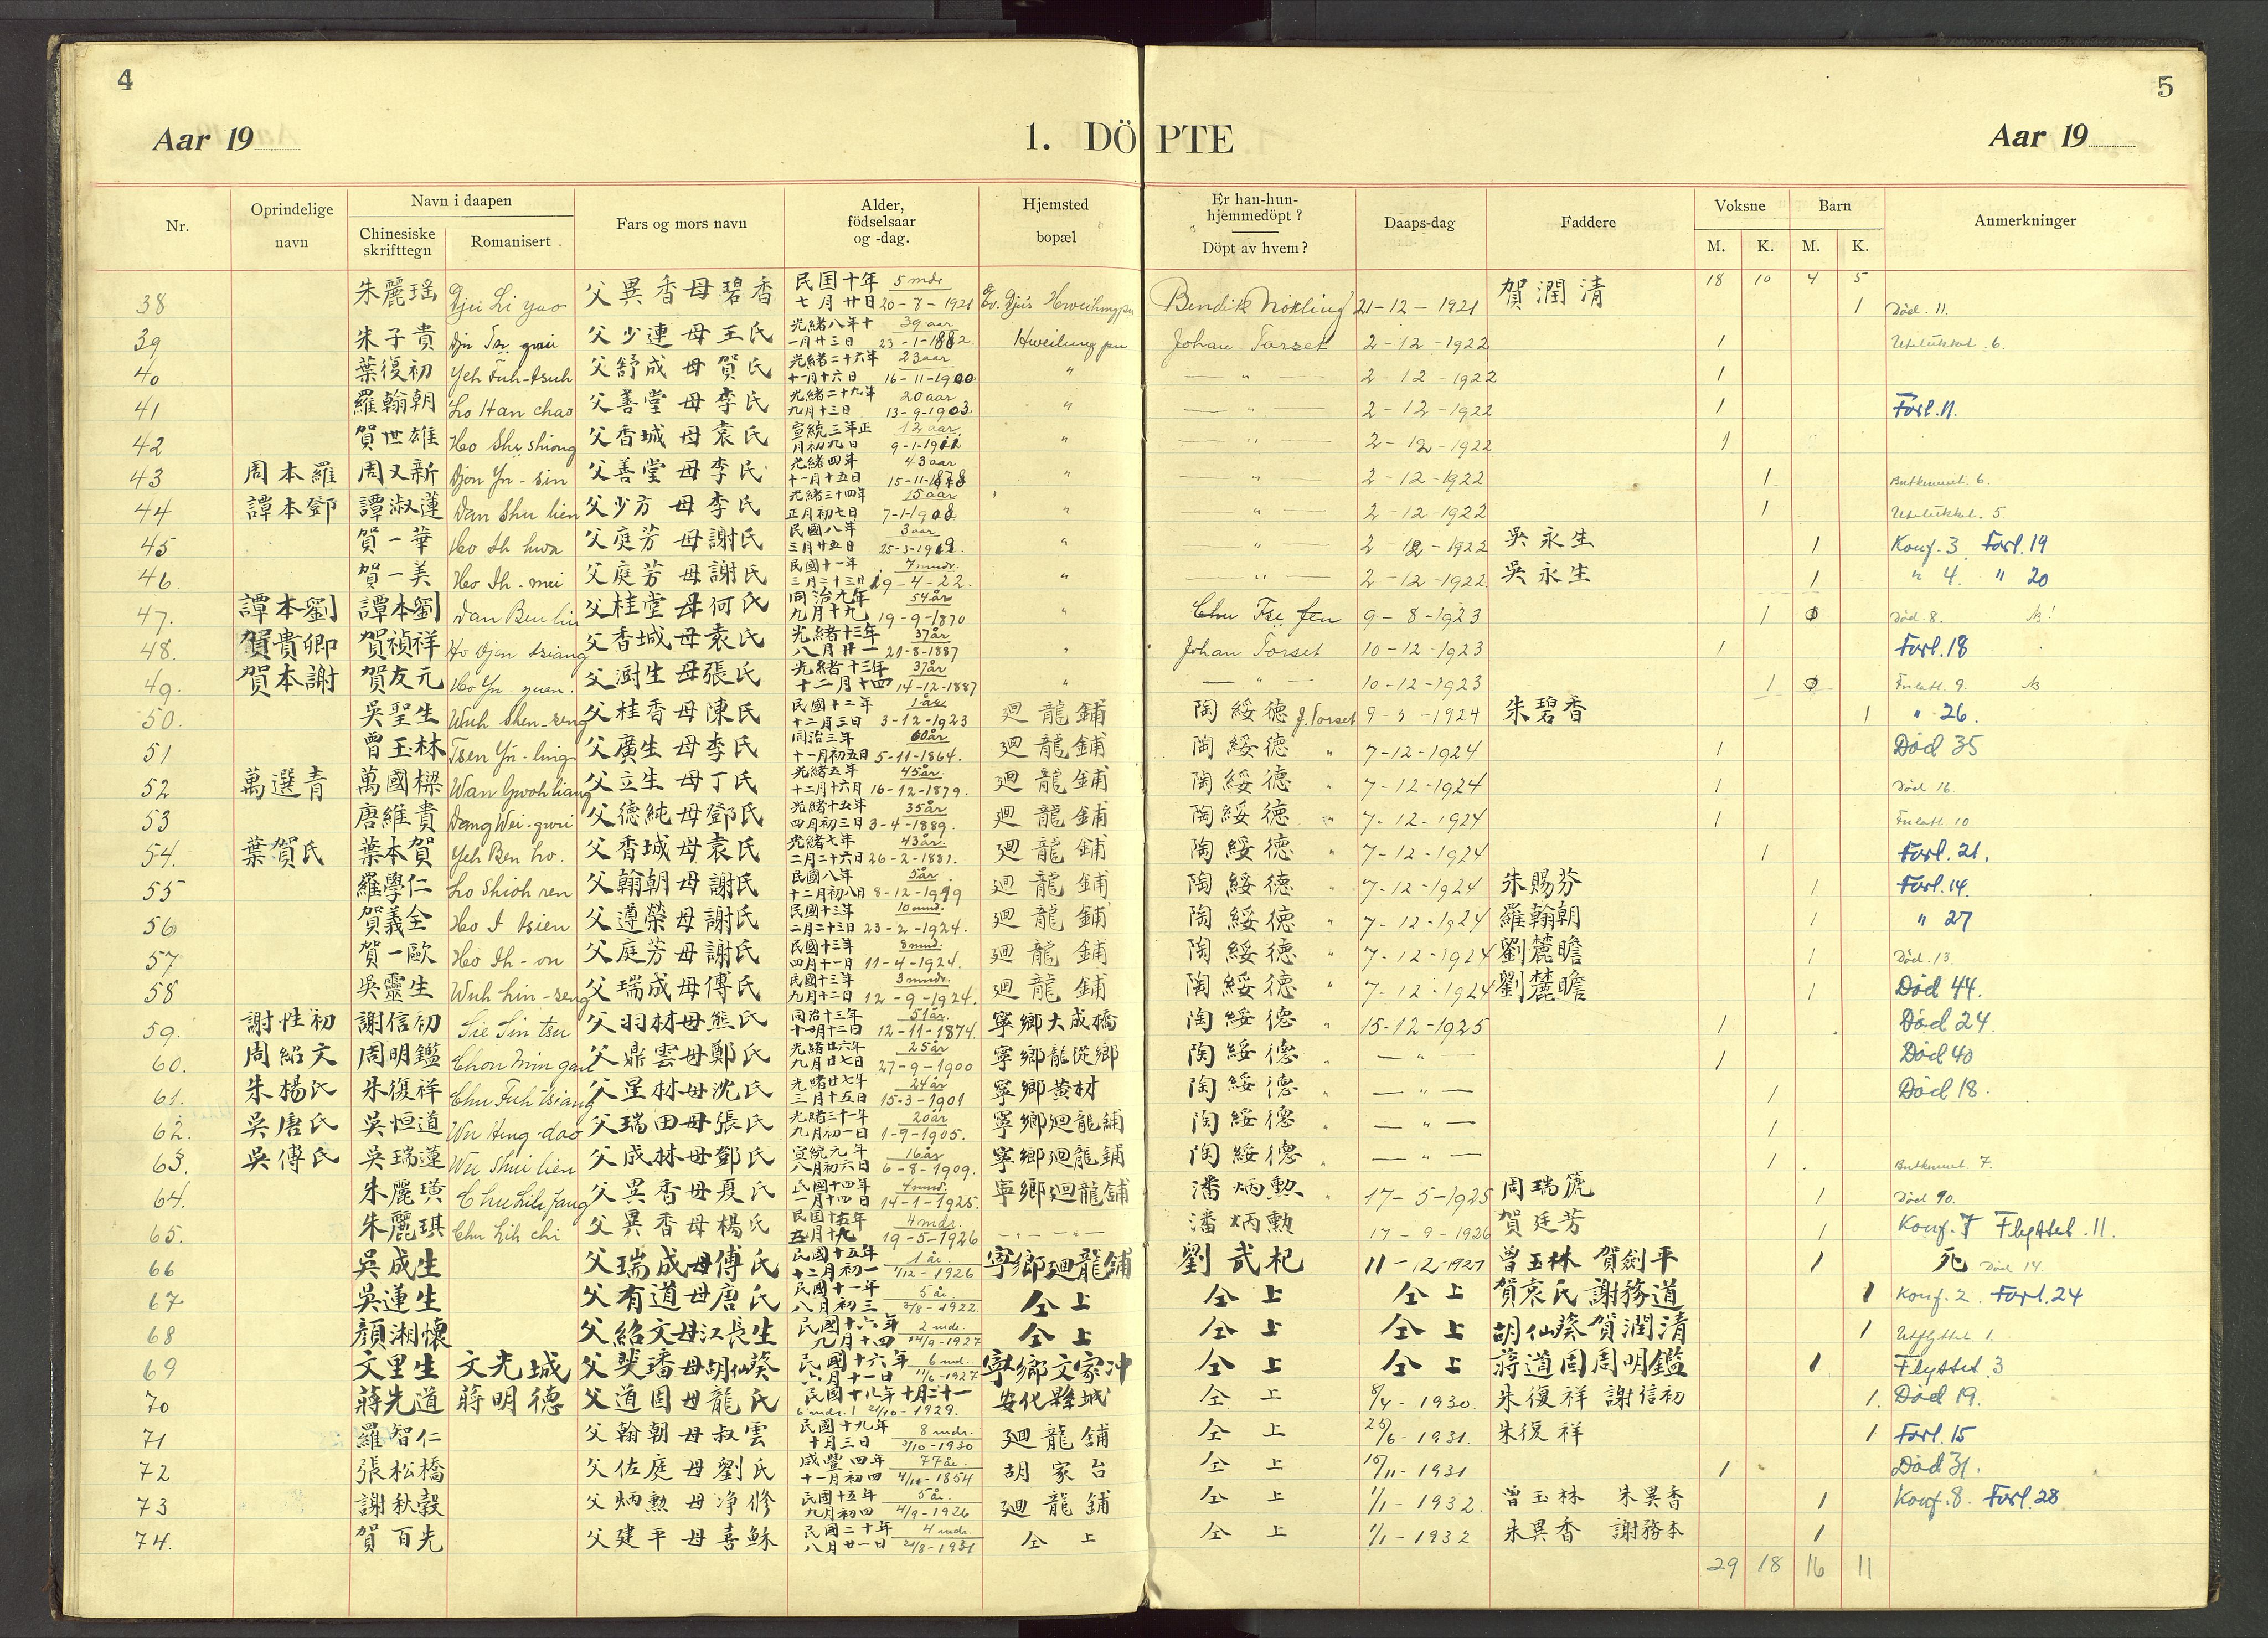 4
5
Aar 19
1. DÖPTE
Aar 19
Nr.
Oprindelige navn
Navn i daapen
Chinesiske skrifttegn
Romanisert
Fars og mors navn
Alder, födselsaar og -dag.
Hjemsted bopæl
Er han-hun-hjemmedöpt?
Döpt av hvem?
Daaps-dag
Faddere
Voksne
M.
K.
Barn
M.
K.
Anmerkninger
18 10 4 5
38 朱麗瑤 Dju Li yao 父異香母碧香 民国十年七月廿日 5 mdr 20-7-1921 Hweilungpu Bendik Nökling 21-12-1921 賀潤清 1 Död. 11.
39 朱子貴 Dju Tsz gwei 父少連母王氏 光緒八年十一月廿三日 39 aar 23-1-1882. Hweilung pu Johan Torset 2-12-1922 1 Utelukket 6.
40 葉復初 Yeh Fuh-tsuh 父舒成母賀氏 光緒二十六年十一月十六日 23 aar 16-11-1900 " — " — 2-12-1922 1
41 羅翰朝 Lo Han chao 父善堂母李氏 光緒二十九年九月十三日 20 aar 13-9-1903 " — " — 2-12-1922 1 Forl. 11.
42 賀世雄 Ho Shï shiong 父香城母袁氏 宣統三年正月初九日 12 aar. 9-1-1911 " — " — 2-12-1922 1
43 周本羅 周又新 Djou Yu-sin 父善堂母李氏 光緒四年十一月十五日 43 aar 15-11-1878 " — " — 2-12-1922 1 Bortkommet. 6.
44 譚本鄧 譚淑蓮 Dan Shu lien 父少方母李氏 光緒三十四年正月初七日 15 aar 7-1-1908 " — " — 2-12-1922 1 Utelukket. 5.
45 賀一華 Ho Ih hwa 父庭芳母謝氏 民國八年三月廿五日 3 aar 25-3-1919. " — " — 2-12-1922 吳永生 1 Konf. 3. Forl. 19
46. 賀一美 Ho Ih-mei 父庭芳母謝氏 民國十一年三月二十三日 7 mndr. 19-4-22. " — " — 2-12-1922. 吳永生 1 " 4. " 20
47. 譚本劉 譚本劉 Dan Ben liu 父桂堂母何氏 同治九年九月十九 54 år 19-9-1870 " Chu Tsï fen 9-8-1923 1 Död. 8. Nb!
48. 賀貴卿 賀禎祥 Ho Djen tsiang 父香城母袁氏 光緒十三年八月廿一 37 år 21-8-1887 " Johan Torset 10-12-1923 1 Forl. 18
49. 賀本謝 賀友元 Ho Yu-yuen. 父澍生母張氏 光緒十三年十二月十四 37 år 14-12-1887 " — " — 10-12-1923 1 Nb
50. 吳聖生 Wuh Shen-seng 父桂香母陳氏 民國十二年十二月三日 3-12-1923 廻龍鋪 陶綏德 J. Torset 9-3-1924 朱碧香 1 " 26.
51 曾玉林 Tsen Yu-ling 父廣生母李氏 同治三年十一月初五日 60 år 5-11-1864. 廻龍鋪 陶綏德 " 7-12-1924 1 Död 35
52 萬選青 萬國樑 Wan Gwoh liang 父立生母丁氏 光緒五年十二月十六日 45 år. 16-12-1879. 廻龍鋪 陶綏德 " 7-12-1924 1 Död 16.
53 唐維貴 Dang Wei-gwei 父德純母鄧氏 光緒十五年四月初三日 35 år 3-4-1889. 廻龍鋪 陶綏德 " 7-12-1924 1
54. 葉賀氏 葉本賀 Yeh Ben ho. 父香城母袁氏 光緒七年二月二十六日 43 år. 26-2-1881. 廻龍鋪 陶綏德 " 7-12-1924 1 Forl. 21.
55 羅學仁 Lo Shioh ren 父翰朝母謝氏 民國八年十二月初八日 5 år 8-12-1919 廻龍鋪 陶綏德 " 7-12-1924 朱賜芬 1 Forl. 14.
56 賀義全 Ho I tsien 父遵榮母謝氏 民國十三年二月二十三日 10 mnd. 23-2-1924. 廻龍鋪 陶綏德 " 7-12-1924 羅翰朝 1 " 27
57 賀一歐 Ho Ih-ou 父庭芳母謝氏 民國十三年四月十一日 8 mnd. 11-4-1924. 廻龍鋪 陶綏德 " 7-12-1924 劉麓瞻 1 Död. 13.
58 吳靈生 Wuh Lin-seng 父瑞成母傅氏 民國十三年九月十二日 3 mndr. 12-9-1924. 廻龍鋪 陶綏德 " 7-12-1924 劉麓瞻 1 Död 44.
59. 謝性初 謝信初 Sie Sin tsu 父羽材母熊氏 同治十三年十一月十二日 51 år. 12-11-1874. 寧鄉大成橋 陶綏德 " 15-12-1925 1 Död 24.
60. 周紹文 周明鑑 Chou Min gan 父鼎雲母鄭氏 光緒廿六年九月廿七日 25 år 27-9-1900 寧鄉龍從鄉 陶綏德 " — " — 1 Död 40
61. 朱楊氏 朱復祥 Chu Fuh tsiang 父星林母沈氏 光緒廿七年三月十五日 24 år 15-3-1901 寧鄉黄材 陶綏德 " — " — 1 Död 18.
62. 吳唐氏 吳恒道 Wu Heng-dao 父瑞田母張氏 光緒三十一年九月初一日 20 år 1-9-1905. 寧鄉廻龍鋪 陶綏德 " — " — 1
63. 吳傅氏 吳瑞蓮 Wu Shui lien 父成林母鄧氏 宣統元年八月初六日 16 år 6-8-1909. 寧鄉廻龍鋪 陶綏德 " — " — 1 Bortkommet. 7.
64. 朱麗璜 父異香母夏氏 民國十四年一月十四日 4 mnd. 14-1-1925. 寧鄉廻龍鋪 潘炳勲 " 17-5-1925 周瑞箎 1
65. 朱麗琪 Chu Lih chi 父異香母楊氏 民国十五年五月十九 4 mdr. 19-5-1926 — " — " — 潘炳勳 17-9-1926 賀廷芳 1 Konf. 7 Flyttet. 11.
66 吳成生 父瑞成母傅氏 民國十五年十二月初一 1 år. 1/12-1926 寧鄉廻龍鋪 劉武杞 11-12-1927 曾玉林 賀劍平 1 死 Död 14.
67 吳蓮生 父有道母唐氏 民國十一年八月初三 5 år. 3/8-1922. 仝上 仝上 仝上 賀袁氏 謝務道 1 Konf. 2. Forl. 24
68 顏湘懷 父紹文母江長生 民國十六年九月十四 2 mdr. 14/9-1927 仝上 仝上 仝上 胡仙葵 賀潤清 1 Utflyttet 1.
69 文里生 文光城 父斐璠母胡仙葵 民國十六年六月十一日 6 md. 11/6-1927 寧鄉文家冲 仝上 仝上 蔣道固 周明鑑 1 Flyttet 3
70 蔣光道 蔣明德 父道固母龍氏 民國十八年十月二十一 6 mdr. 21/10-1929. 安化縣城 仝上 8/4-1930. 朱復祥 謝信初 1. Död 19.
71 羅智仁 父翰朝母叔雲 民國十九年十月三日 8 mdr. 3/10-1930 廻龍鋪 仝上 25/6-1931. 朱復祥 1 Forl. 15
72 張松橋 父佐庭母劉氏 咸豐四年十一月初四 77 år. 4/11-1854 胡家台 仝上 15/11-1931 1 Död 31.
73 謝秋穀 父炳勲母净修 民國十五年九月初四 5 år. 4/9-1926 廻龍鋪 仝上 1/1-1932. 曾玉林 朱異香 1 Konf. 8. Forl. 28
74. 賀百先 父建平母喜穌 民國二十年八月廿一日 4 mdr. 21/8-1931 仝上 仝上 1/1-1932 朱異香 謝務本 1
29 18 16 11